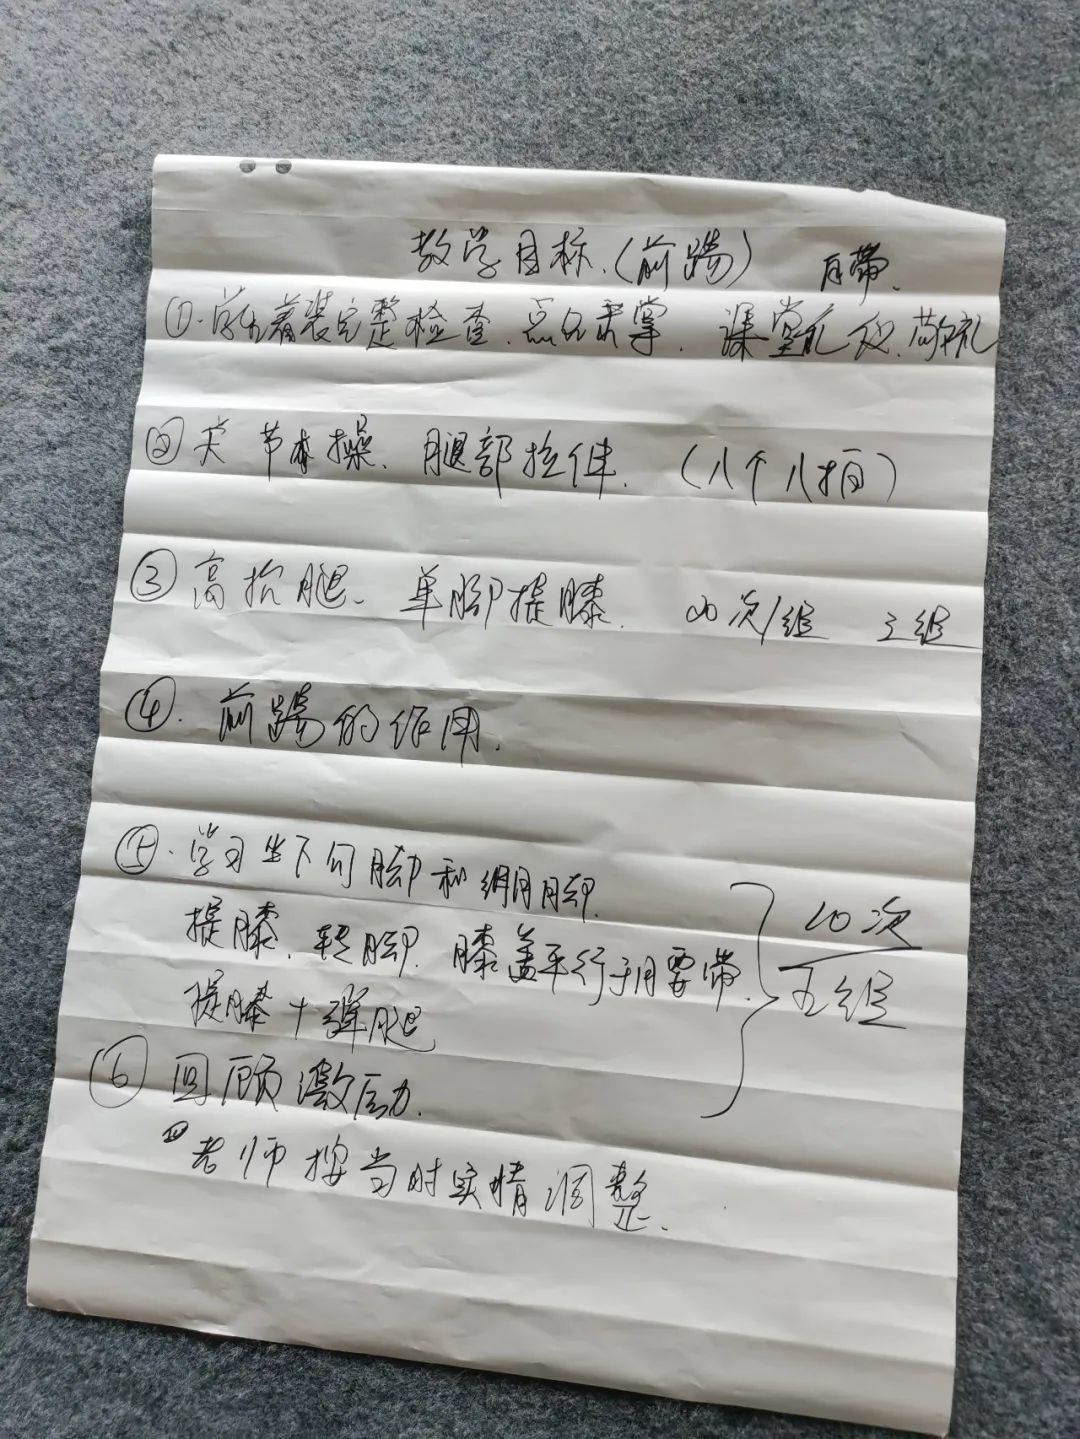 教学目标、(前踢) 白带、
①.学生着装完整检查、点名掌、课堂礼仪、敬礼
② 关节体操、腿部拉伸、(八个八拍)
③ 高抬腿、单脚提膝、20次/组 三组
④. 前踢的作用、
⑤. 学习坐下勾脚和绷脚、
提膝、转脚、膝盖平行于腰带、
提膝+弹腿
10次
五组
⑥ 回顾激励、
老师按当时实情调整、